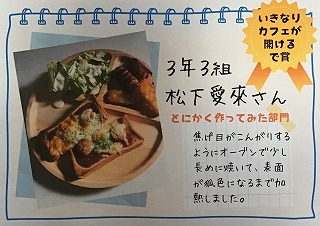 いきなり
カフェが
開ける
で賞
3年3組
松下愛來さん
とにかく作ってみた部門
焦げ目がこんがりする
ようにオーブンで少し
長めに焼いて、表面
が狐色になるまで加
熱しました。